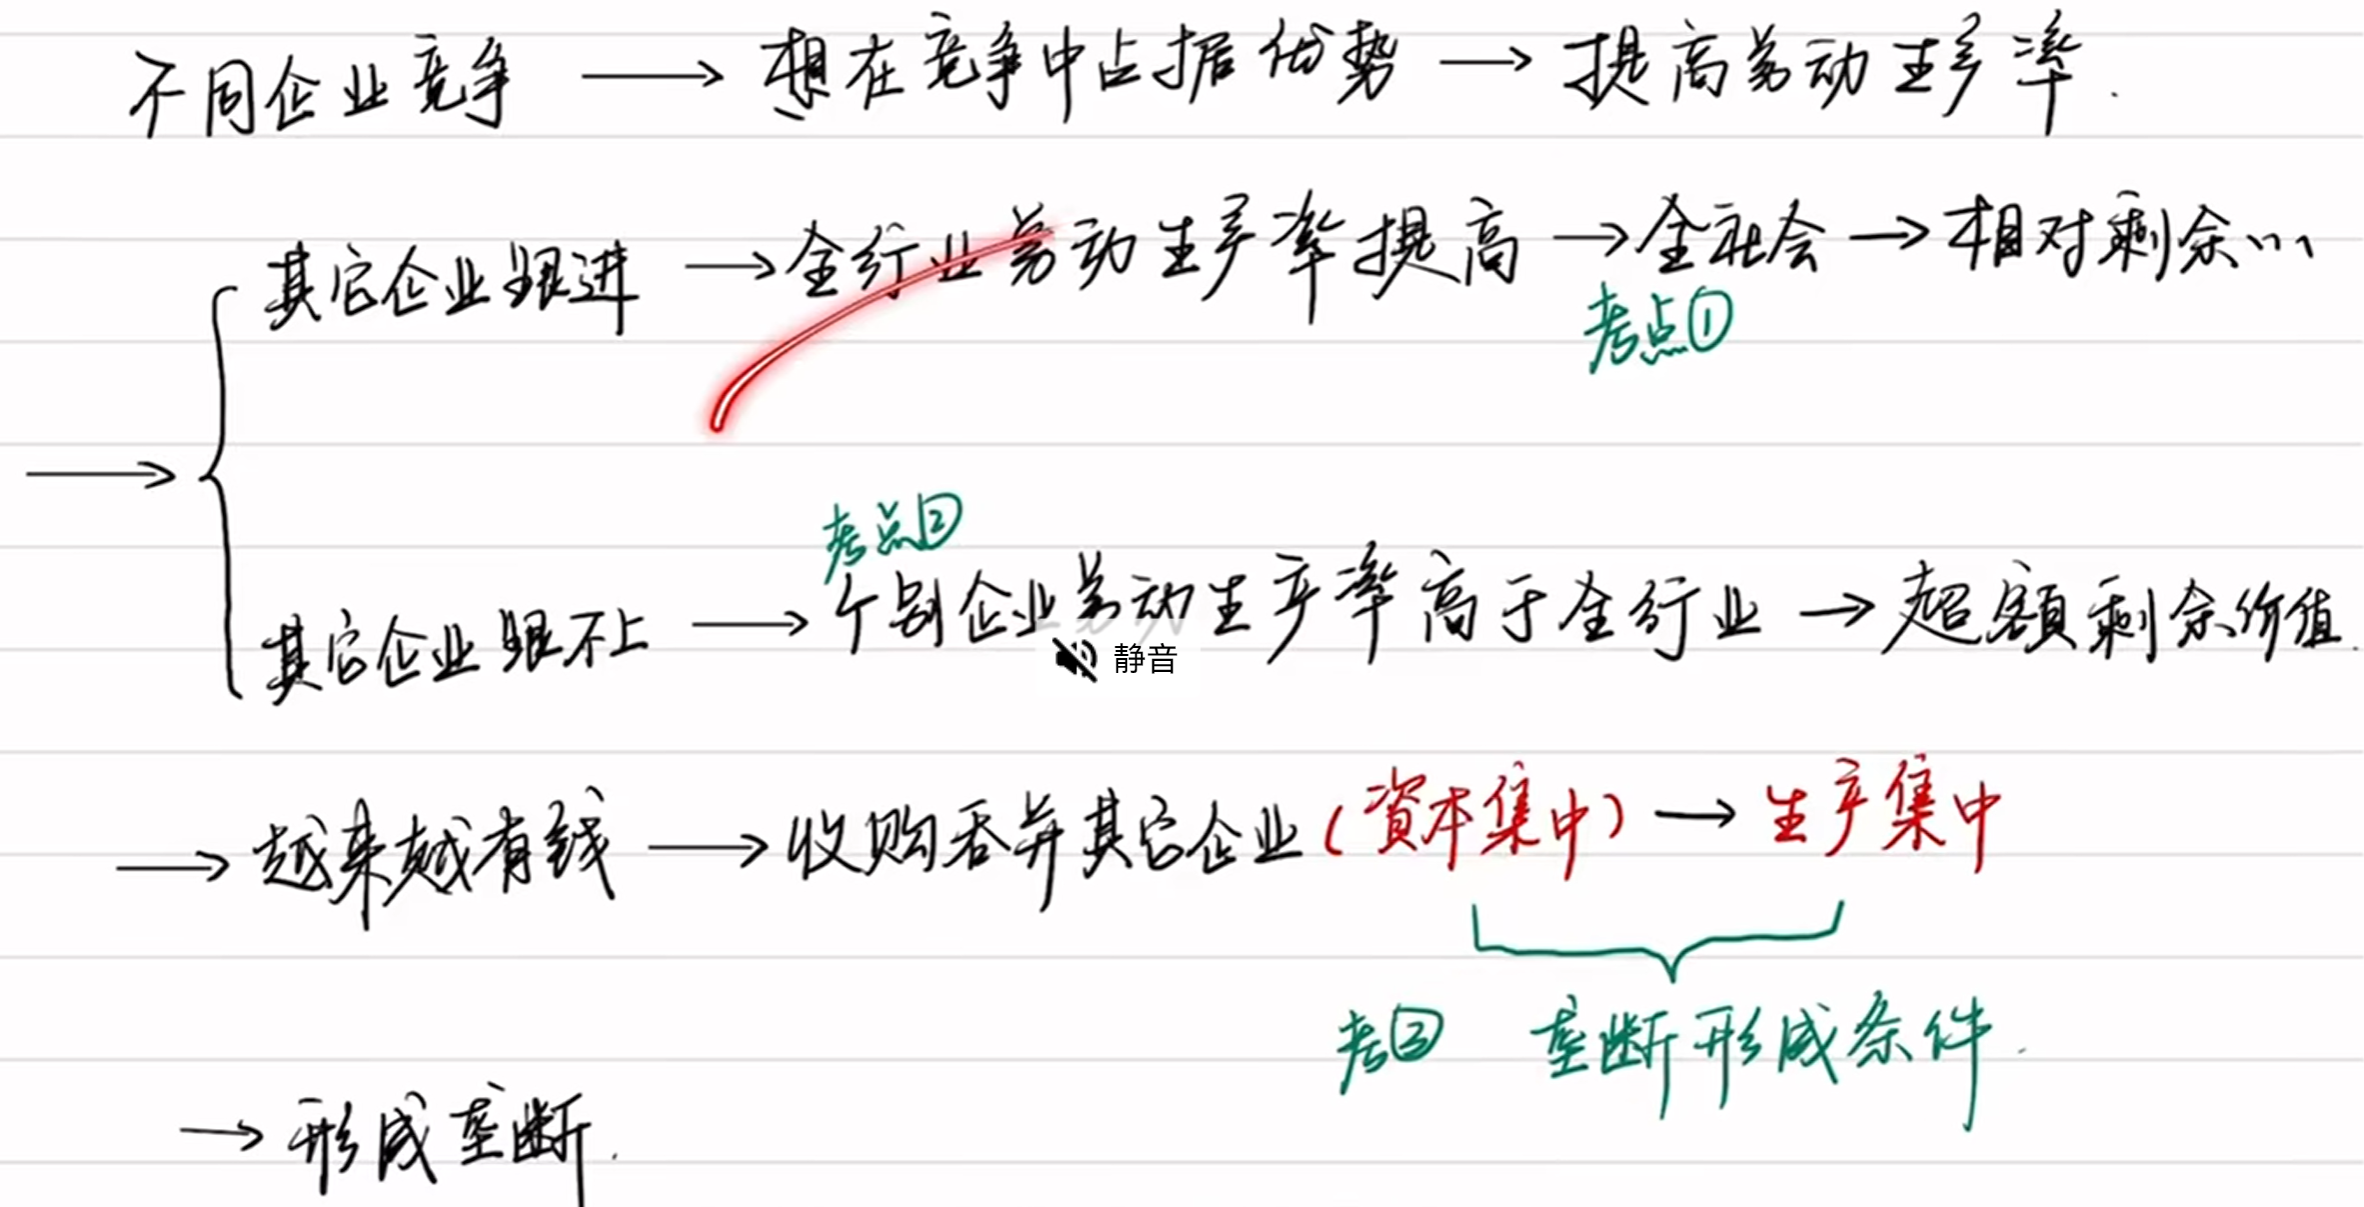 不同企业竞争 → 想在竞争中占据优势 → 提高劳动生产率.
其它企业跟进 → 全行业劳动生产率提高 → 全社会 → 相对剩余...
考点①
→
考点②
其它企业跟不上 → 个别企业劳动生产率高于全行业 → 超额剩余价值.
静音
→ 越来越有钱 → 收购吞并其它企业(資本集中) → 生产集中
考③ 垄断形成条件.
→ 形成垄断.